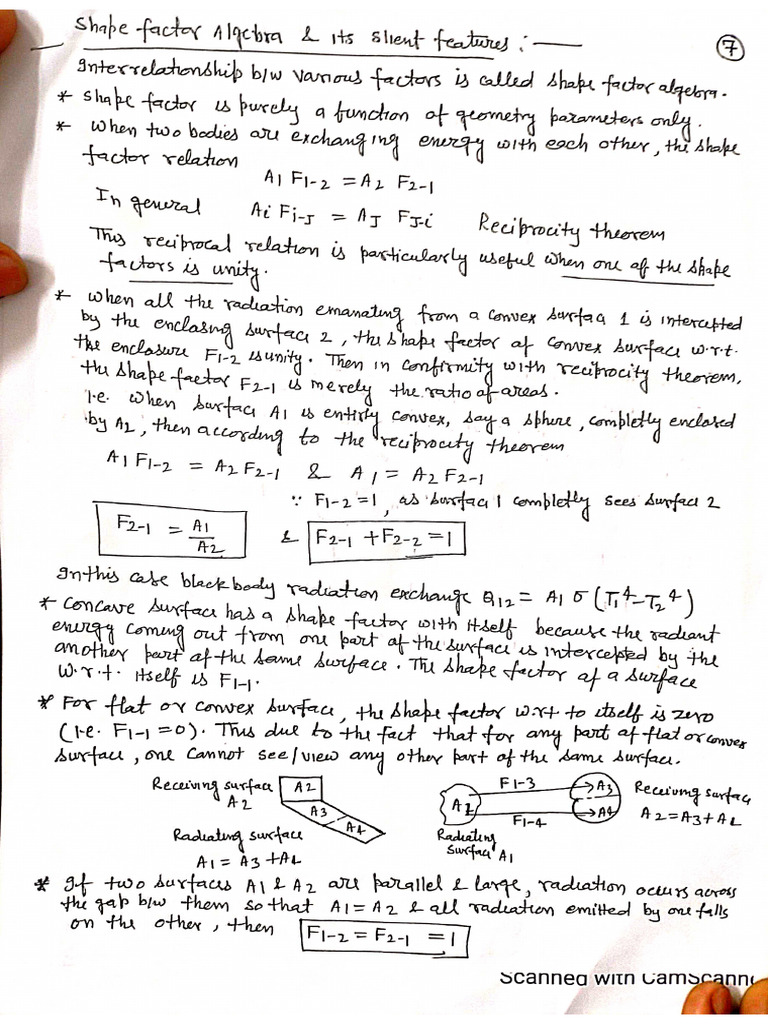 Shape factor Algebra & its slient features : —
7
Interrelationship b/w various factors is called shape factor algebra.
* Shape factor is purely a function of geometry parameters only.
* When two bodies are exchanging energy with each other, the shape
factor relation
A1 F1-2 = A2 F2-1
In general Ai Fi-J = AJ FJ-i Reciprocity theorem
This reciprocal relation is particularly useful when one of the shape
factors is unity.
* When all the radiation emanating from a convex surfac 1 is intercepted
by the enclosng surface 2, the shape factor of convex surface w.r.t.
the enclosure F1-2 is unity. Then in confirmity with reciprocity theorem,
the shape factor F2-1 is merely the ratio of areas.
i.e. when surfac A1 is entirly convex, say a sphere, completly enclosed
by A2, then according to the reciprocity theorem
A1 F1-2 = A2 F2-1 & A1 = A2 F2-1
∵ F1-2 = 1, as surfac 1 completly sees surfac 2
F2-1 = A1/A2 & F2-1 + F2-2 = 1
In this case black body radiation exchange Q12 = A1 σ (T1^4 - T2^4)
* Concave surface has a shape factor with itself because the radiant
energy coming out from one part of the surface is intercepted by the
another part of the same surface. The shape factor of a surface
w.r.t. itself is F1-1.
* For flat or convex surface, the shape factor w.r.t to itself is zero
(i.e. F1-1 = 0). This due to the fact that for any part of flat or convex
surface, one cannot see/view any other part of the same surface.
Receiving surface A2
A2
A3
A4
Radiating surface
A1 = A3 + A4
A1
F1-3
F1-4
A3
A4
Receiving surface
A2 = A3 + A4
Radiating
surface A1
* If two surfaces A1 & A2 are parallel & large, radiation occurs across
the gap b/w them so that A1 = A2 & all radiation emitted by one falls
on the other, then F1-2 = F2-1 = 1
Scanned with CamScann